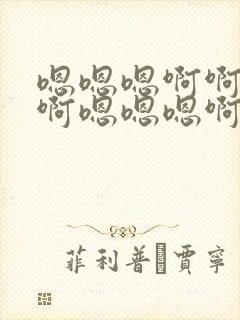 嗯嗯嗯啊啊
啊嗯嗯嗯啊
菲利普·賈寧